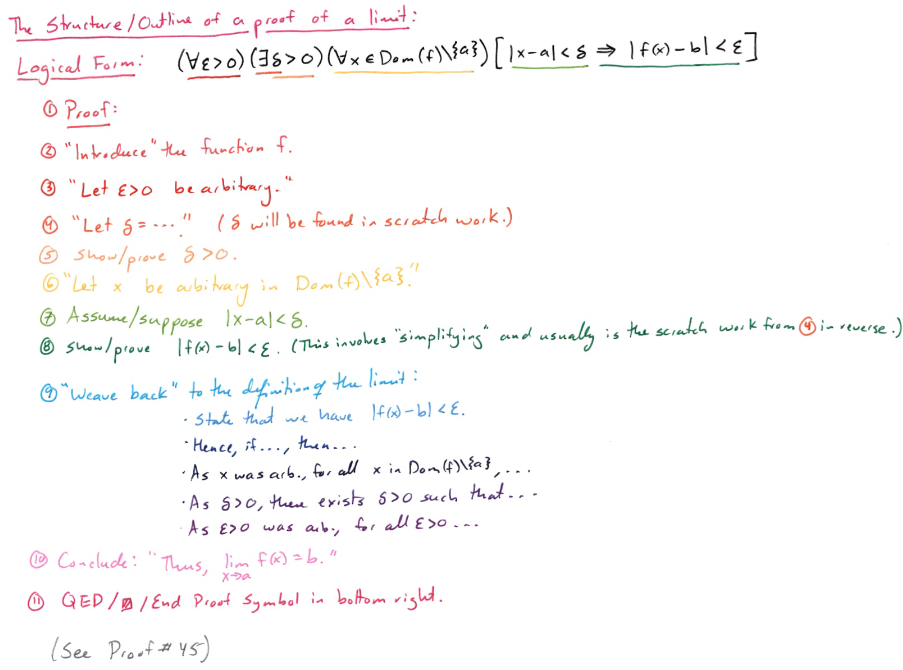 The Structure/Outline of a proof of a limit:
Logical Form: (∀ε>0)(∃δ>0)(∀x∈Dom(f)\{a})[|x-a|<δ ⇒ |f(x)-b|<ε]
① Proof:
② "Introduce" the function f.
③ "Let ε>0 be arbitrary."
④ "Let δ=...." (δ will be found in scratch work.)
⑤ Show/prove δ>0.
⑥ "Let x be arbitrary in Dom(f)\{a}."
⑦ Assume/suppose |x-a|<δ.
⑧ Show/prove |f(x)-b|<ε. (This involves "simplifying" and usually is the scratch work from ④ in reverse.)
⑨ "Weave back" to the definition of the limit:
· State that we have |f(x)-b|<ε.
· Hence, if..., then...
· As x was arb., for all x in Dom(f)\{a},...
· As δ>0, there exists δ>0 such that...
· As ε>0 was arb., for all ε>0...
⑩ Conclude: "Thus, lim x→a f(x)=b."
⑪ QED/⍁/End Proof Symbol in bottom right.
(See Proof #45)